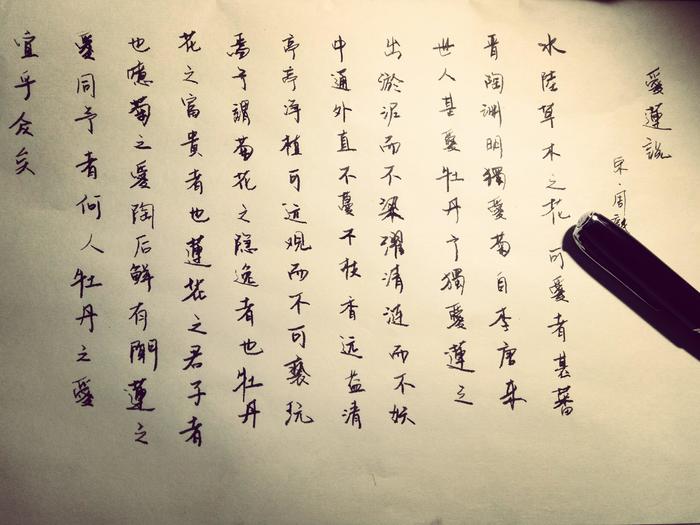 愛蓮說
宋·周敦
水陸草木之花可愛者甚蕃
晋陶渊明獨愛菊自李唐来
世人甚愛牡丹予獨愛蓮之
出淤泥而不染濯清涟而不妖
中通外直不蔓不枝香远益清
亭亭净植可远观而不可亵玩
焉予謂菊花之隐逸者也牡丹
花之富贵者也蓮花之君子者
也噫菊之愛陶后鲜有聞蓮之
愛同予者何人牡丹之愛
宜乎众矣